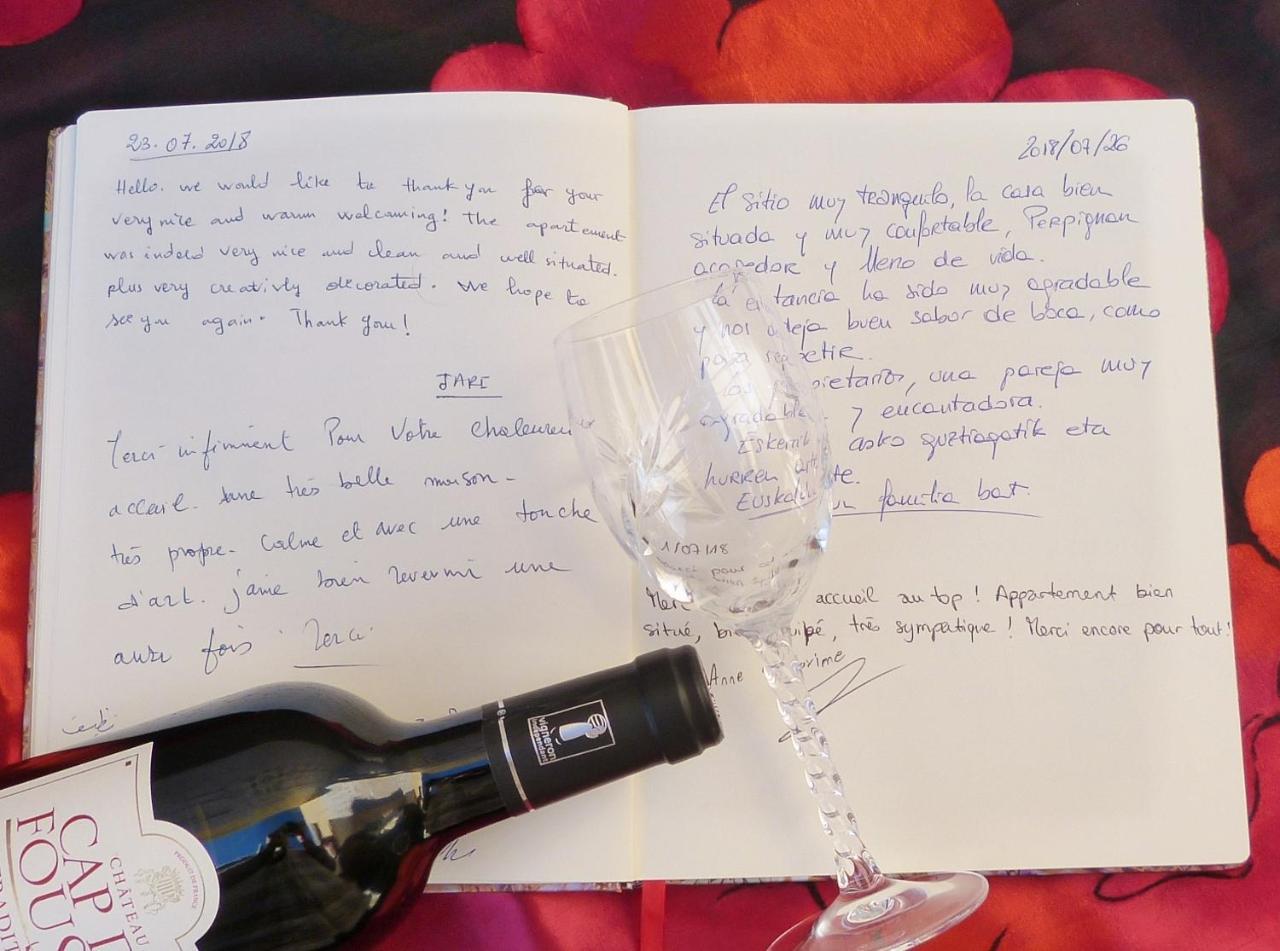 23.07.2018
Hello. we would like to thank you for your
very nice and warm welcoming! The apartement
was indeed very nice and clean and well situated.
plus very creativly decorated. We hope to
see you again. Thank you!
JARI
Merci infiniment Pour Votre chaleureux
acceuil. une très belle maison.
très propre. Calme et avec une touche
d'art. j'aime bien revenir une
autre fois. Merci
2018/07/26
El sitio muy tranquilo, la casa bien
situada y muy confortable, Perpignan
acogedor y lleno de vida.
La estancia ha sido muy agradable
y nos deja buen sabor de boca, como
para repetir.
Los propietarios, una pareja muy
agradable y encantadora.
Eskerrik asko guztiagatik eta
hurren arte.
Euskal familia bat.
1/07/18
pour
Merci accueil au top! Appartement bien
situé, bien équipé, très sympatique! Merci encore pour tout!
Anne
vigneron
indépendant
CHÂTEAU
CAP
FOUS
TRADIT
PRODUCT OF FRANCE